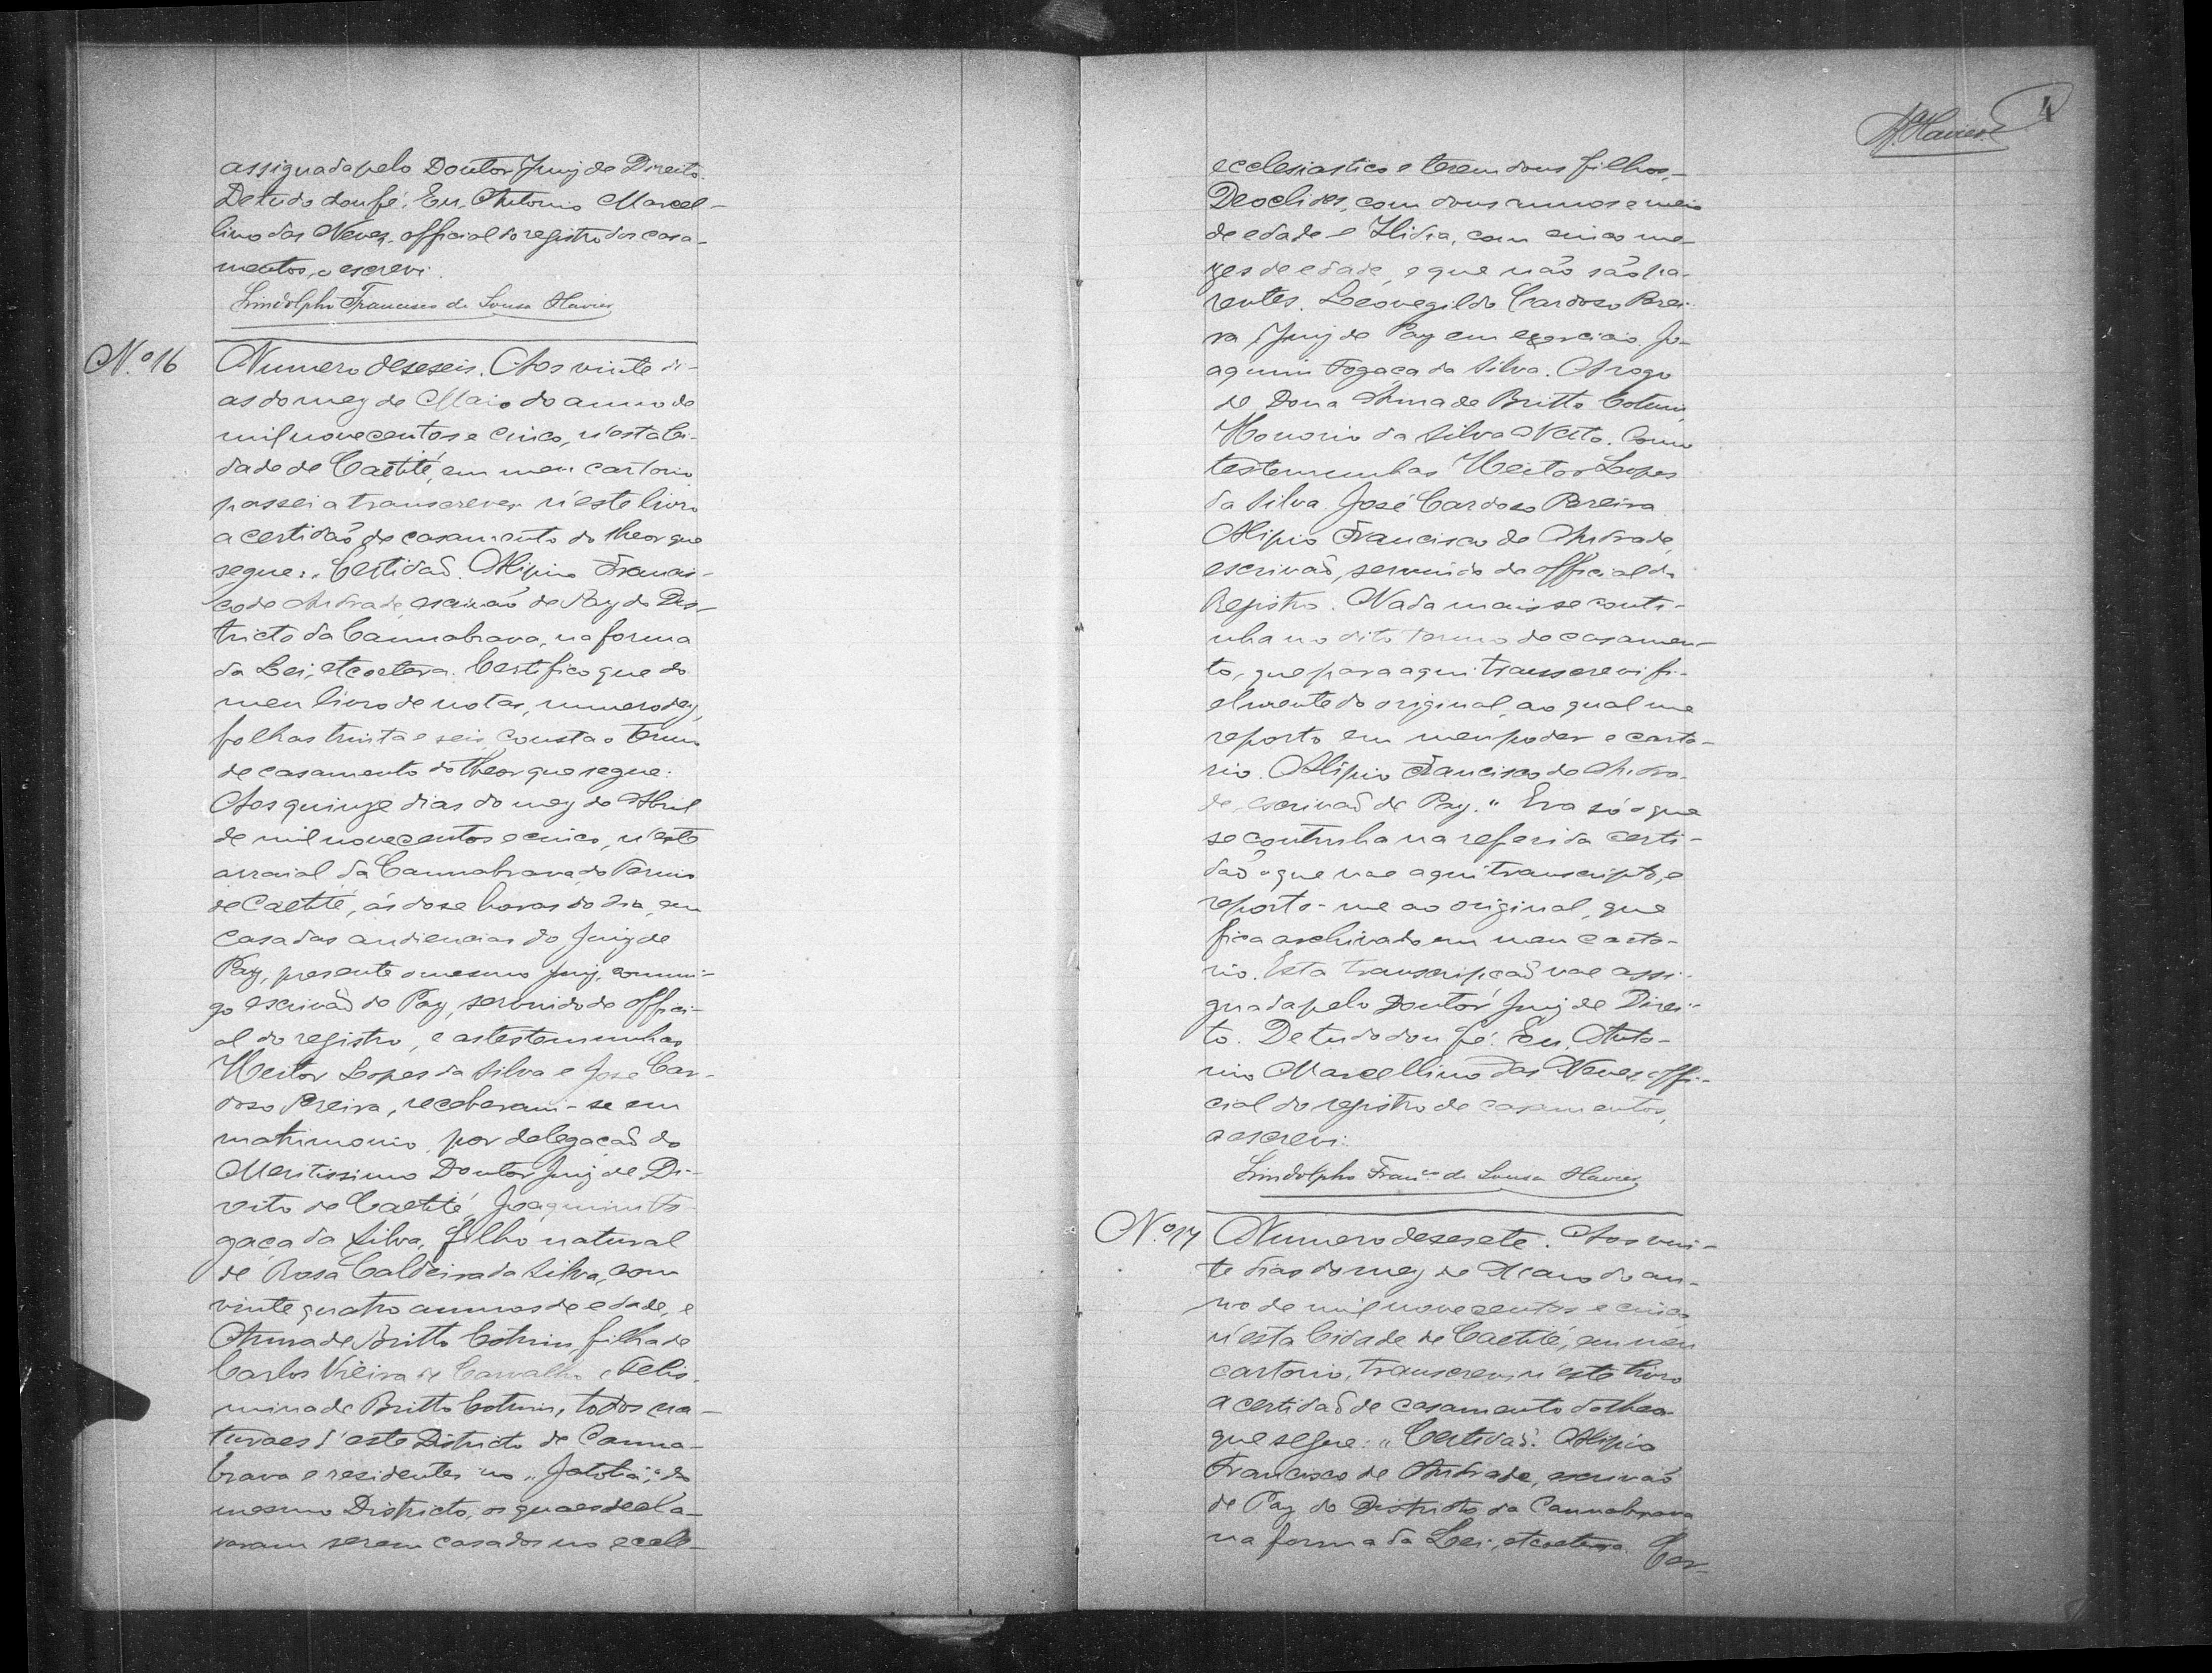 assignada pelo Doutor Juiz de Direito.
De tudo dou fé. Eu, Antonio Marcel-
lino das Neves, official do registro dos casa-
mentos, o escrevi.
Lindolpho Francisco de Sousa Xavier
N.º 16
Numero deseseis. Aos vinte di-
as do mez de Maio do anno de
mil novecentos e cinco, n'esta Ci-
dade de Caetité, em meu cartorio
passei a transcrever n'este livro
a certidaõ de casamento do theor que
segue: "Certidaõ. Alipio Francis-
co de Andrade, escrivaõ de Paz do Dis-
tricto da Cannabrava, na forma
da Lei, etcoetera. Certifico que do
meu livro de notas, numero dez,
folhas trinta e seis, consta o termo
de casamento do theor que segue:
Aos quinze dias do mez de Abril
de mil novecentos e cinco, n'este
arraial da Cannabrava, do Termo
de Caetité, ás dose horas do dia, em
casa das audiencias do Juiz de
Paz, presente o mesmo Juiz, commi-
go escrivaõ de Paz, servindo de offici-
al do registro, e as testemunhas
Heitor Lopes da Silva e José Car-
doso Pereira, receberam-se em
matrimonio, por delegaçaõ do
Meritissimo Doutor Juiz de Di-
reito de Caetité, Joaquim Fo-
gaça da Silva, filho natural
de Rosa Caldeira da Silva, com
vinte quatro annos de edade, e
Anna de Britto Cotrim, filha de
Carlos Vieira de Carvalho e Felis-
mina de Britto Cotrim, todos na-
turaes d'este Districto de Canna-
brava e residentes no "Jatobá", do
mesmo Districto, os quaes decla-
raram serem casados no eccle-
4
ecclesiastico e terem dous filhos,
Deoclides, com dous annos e meio
de edade e Ilidia, com cinco me-
zes de edade, e que não são pa-
rentes. Leovegildo Cardoso Perei-
ra, Juiz de Paz em exercicio. Jo-
aquim Fogaça da Silva. A rogo
de Dona Anna de Britto Cotrim,
Honorio da Silva Neto. Como
testemunhas Heitor Lopes
da Silva. José Cardoso Pereira.
Alipio Francisco de Andrade,
escrivaõ, servindo de official do
Registro. Nada mais se conti-
nha no dito termo de casamen-
to, que para aqui transcrevi fi-
elmente do original, ao qual me
reporto em meu poder e carto-
rio. Alipio Francisco de Andra-
de, escrivaõ de Paz." Era só o que
se continha na referida certi-
daõ o que vae aqui transcripto, e
reporto-me ao original, que
fica archivado em meu carto-
rio. Esta transcripçaõ vae assi-
gnada pelo Doutor Juiz de Direi-
to. De tudo dou fé. Eu, Anto-
nio Marcellino das Neves, offi-
cial do registro de casamentos,
o escrevi.
Lindolpho Fran.co de Sousa Xavier
N.º 17
Numero desesete. Aos vin-
te dias do mez de Maio do an-
no de mil novecentos e cinco,
n'esta Cidade de Caetité, em meu
cartorio, transcrevi n'este livro
a certidaõ de casamento do theor
que segue: "Certidaõ. Alipio
Francisco de Andrade, escrivaõ
de Paz do Districto da Cannabrava
na forma da Lei, etcoetera. Cer-